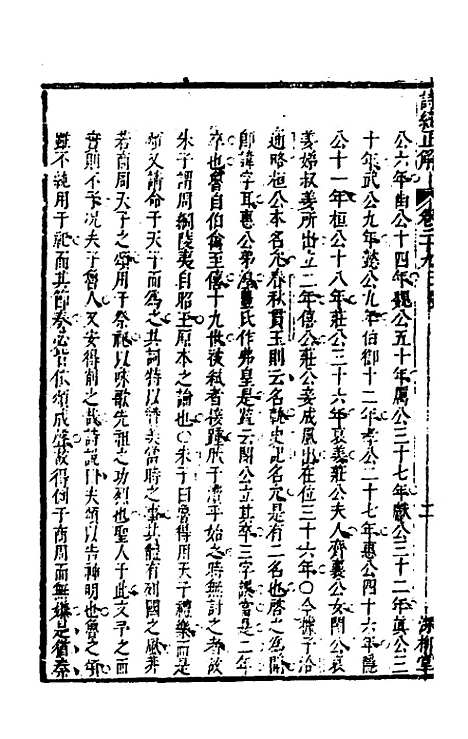 詩經正解 卷二十九
公六年由公十四年魏公五十年厲公三十七年獻公三十二年眞公三
十年武公九年懿公九年伯御十二年孝公二十七年惠公四十六年隱
公十一年桓公十八年莊公三十六年哀姜莊公夫人齊襄公女閔公哀
姜娣叔姜所出立二年僖公莊公妾成風出在位三十六年○今據子洽
通略桓公本名允春秋貫玉則云名軌史記名允是有二名也啓之爲開
卽諱字耳惠公弗湟氏作弗皇是英云閔公立其卒三字誤當是二年
卒也魯自伯禽至僖十九世被弒者接踵於子瀆乎始之時無討之者故
朱子謂周綱陵夷自昭王原本之論也○朱子曰魯得用天子禮樂而是
又請命于天子而爲之其詞特以讚美當時之事其體有列國之風非
若商周天子之頌用于祭祀以咏歌先祖之功烈也聖人于此文予之而
實則不予况夫子魯人又安得削之哉詩說曰夫頌以告神明也魯之頌
雖不純用于祀而其節奏必皆依頌成聲故得例于商周而無嫌是猶秦